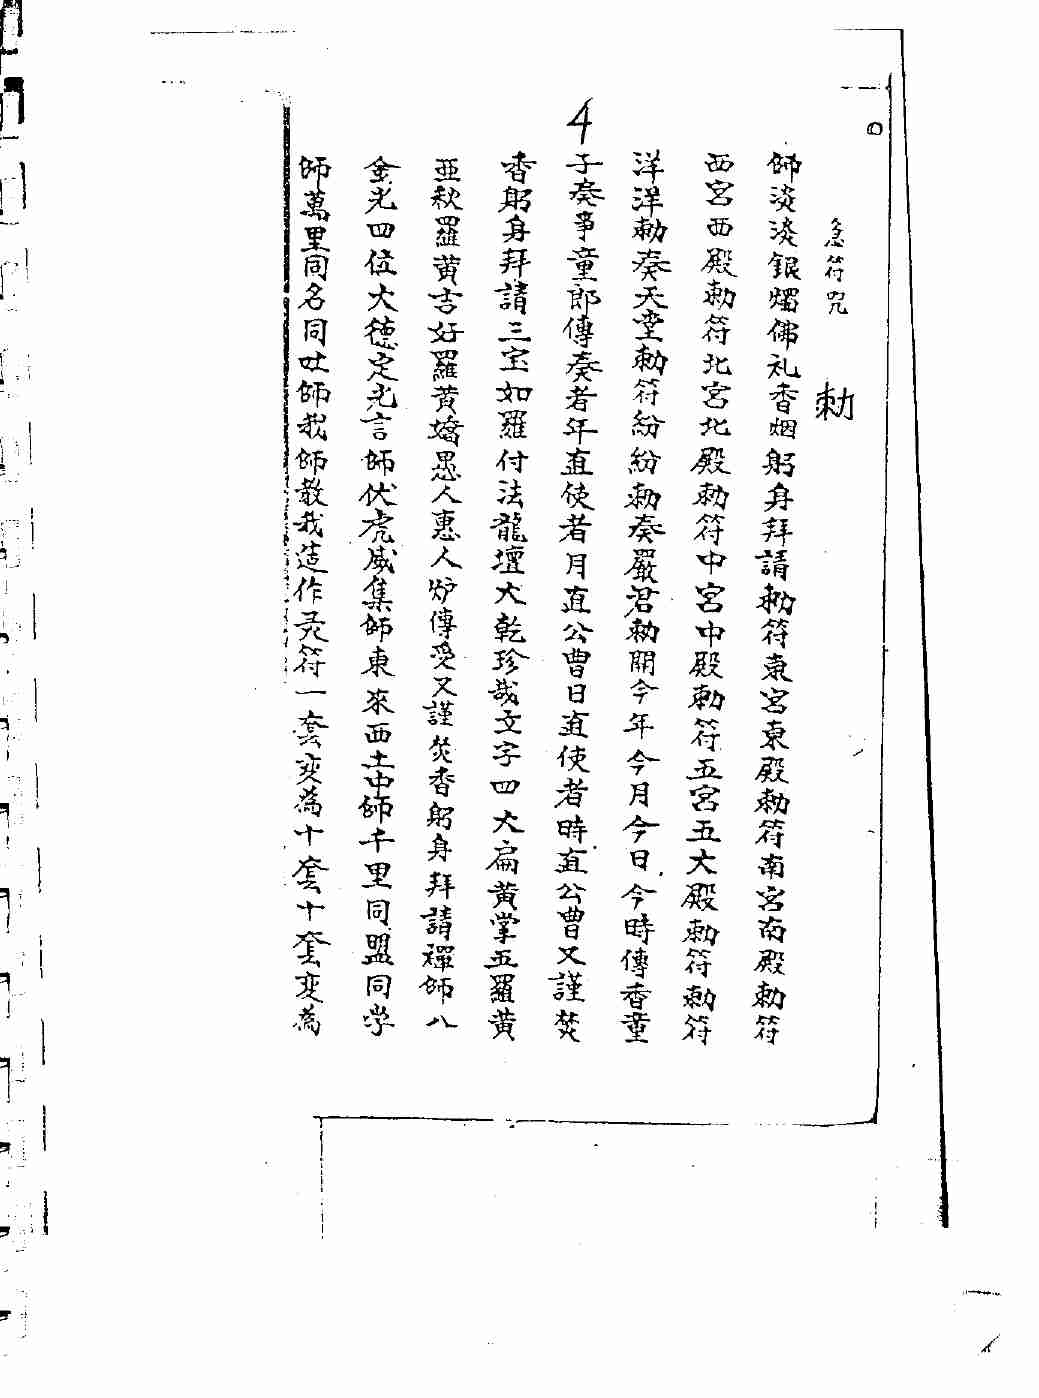 4
急符咒 勅
師淡淡銀燭佛礼香烟躬身拜請勅符東宮東殿勅符南宮南殿勅符
西宮西殿勅符北宮北殿勅符中宮中殿勅符五宮五大殿勅符勅符
洋洋勅奏天堂勅符紛紛勅奏嚴君勅開今年今月今日今時傳香童
子奏事童郎傳奏者年直使者月直公曹日直使者時直公曹又謹焚
香躬身拜請三宝如羅付法龍壇大乾珍哉文字四大扁黄掌五羅黄
亜秋羅黄吉好羅黄嬌愚人惠人炉傳受又謹焚香躬身拜請禪師八
金光四位大德定光言師伏虎威集師東來西土中師千里同盟同学
師萬里同名同吐師我師教我造作灵符一套变為十套十套变為